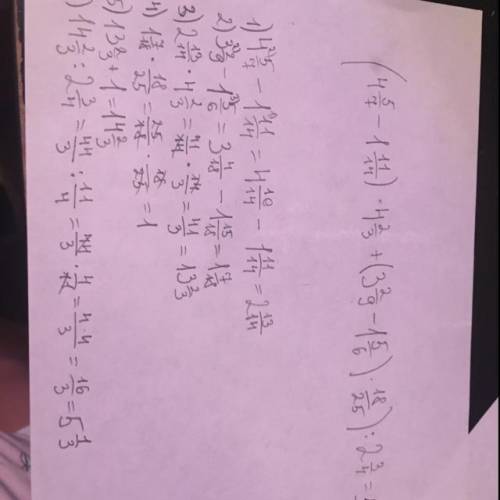 (4 5/7 − 1 11/14) · 4 2/3 + (3 2/9 − 1 5/6) · 18/25) : 2 3/4 =
1) 4 5/7 − 1 11/14 = 4 10/14 − 1 11/14 = 2 13/14
2) 3 2/9 − 1 5/6 = 3 4/18 − 1 15/18 = 1 7/18
3) 2 13/14 · 4 2/3 = 41/14 · 14/3 = 41/3 = 13 2/3
4) 1 7/18 · 18/25 = 25/18 · 18/25 = 1
5) 13 2/3 + 1 = 14 2/3
) 14 2/3 : 2 3/4 = 44/3 : 11/4 = 44/3 · 4/11 = 4·4/3 = 16/3 = 5 1/3